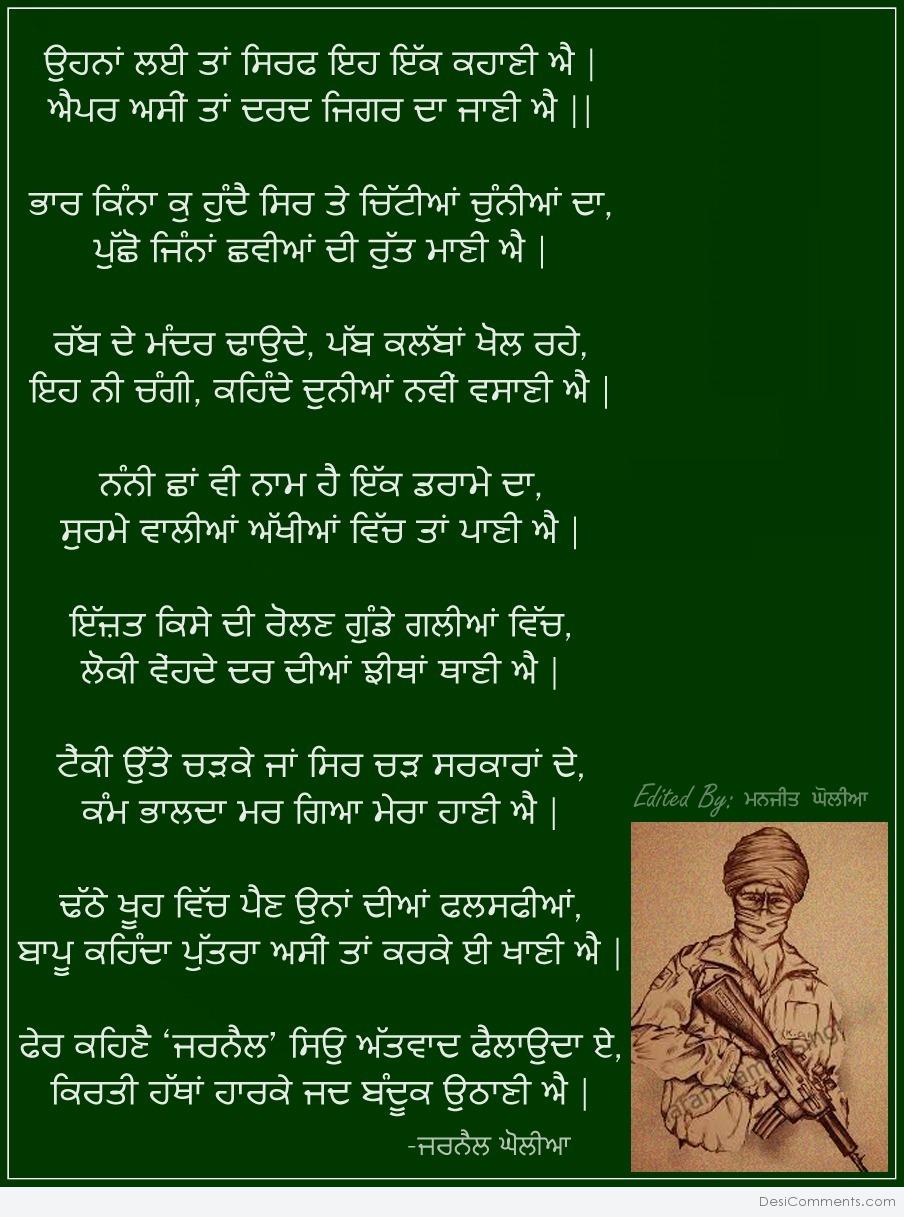 ਉਹਨਾਂ ਲਈ ਤਾਂ ਸਿਰਫ ਇਹ ਇੱਕ ਕਹਾਣੀ ਐ |
ਐਪਰ ਅਸੀਂ ਤਾਂ ਦਰਦ ਜਿਗਰ ਦਾ ਜਾਣੀ ਐ ||
ਭਾਰ ਕਿੰਨਾ ਕੁ ਹੁੰਦੈ ਸਿਰ ਤੇ ਚਿੱਟੀਆਂ ਚੁੰਨੀਆਂ ਦਾ,
ਪੁੱਛੋ ਜਿੰਨਾਂ ਛਵੀਆਂ ਦੀ ਰੁੱਤ ਮਾਣੀ ਐ |
ਰੱਬ ਦੇ ਮੰਦਰ ਢਾਉਦੇ, ਪੱਬ ਕਲੱਬਾਂ ਖੋਲ ਰਹੇ,
ਇਹ ਨੀ ਚੰਗੀ, ਕਹਿੰਦੇ ਦੁਨੀਆਂ ਨਵੀਂ ਵਸਾਣੀ ਐ |
ਨੰਨੀ ਛਾਂ ਵੀ ਨਾਮ ਹੈ ਇੱਕ ਡਰਾਮੇ ਦਾ,
ਸੁਰਮੇ ਵਾਲੀਆਂ ਅੱਖੀਆਂ ਵਿੱਚ ਤਾਂ ਪਾਣੀ ਐ |
ਇੱਜ਼ਤ ਕਿਸੇ ਦੀ ਰੋਲਣ ਗੁੰਡੇ ਗਲੀਆਂ ਵਿੱਚ,
ਲੋਕੀ ਵੇਂਹਦੇ ਦਰ ਦੀਆਂ ਝੀਥਾਂ ਥਾਣੀ ਐ |
ਟੈਂਕੀ ਉੱਤੇ ਚੜਕੇ ਜਾਂ ਸਿਰ ਚੜ ਸਰਕਾਰਾਂ ਦੇ,
ਕੰਮ ਭਾਲਦਾ ਮਰ ਗਿਆ ਮੇਰਾ ਹਾਣੀ ਐ |
ਢੱਠੇ ਖੂਹ ਵਿੱਚ ਪੈਣ ਉਨਾਂ ਦੀਆਂ ਫਲਸਫੀਆਂ,
ਬਾਪੂ ਕਹਿੰਦਾ ਪੁੱਤਰਾ ਅਸੀਂ ਤਾਂ ਕਰਕੇ ਈ ਖਾਣੀ ਐ |
ਫੇਰ ਕਹਿਣੈ ‘ਜਰਨੈਲ’ ਸਿਓੁ ਅੱਤਵਾਦ ਫੈਲਾਉਦਾ ਏ,
ਕਿਰਤੀ ਹੱਥਾਂ ਹਾਰਕੇ ਜਦ ਬੰਦੂਕ ਉਠਾਣੀ ਐ |
-ਜਰਨੈਲ ਘੋਲੀਆ
Edited By: ਮਨਜੀਤ ਘੋਲੀਆ
DesiComments.com